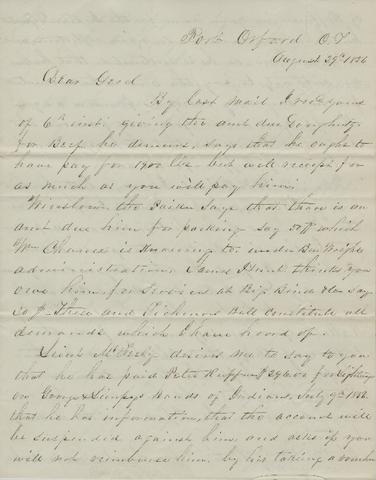 Port Orford O.T.
August 29th 1856
Dear Geod
By last mail I recd yours
of 6th inst. giving the amt due Doughty
for Beef he demurs, says that he ought to
have pay for 1900 lbs. but will receipt for
as much as you will pay him.
Winslow the Packer says that there is an
amt due him for packing say 50$ which
Wm Chance is knowing to under Ben Wright
administration, Saml thinks you
owe him for Services at Big Bend &c say
50$. These and Richmond Bill Constitute all
demands which I have heard of.
Lieut desires me to say to you
that he has paid Peter Ruffner $296.00 for
on George & Limpys bands of Indians, July 9th 1856.
that he has information, that the account will
be suspended against him, and asks if you
will not reimburse him, by his taking a voucher